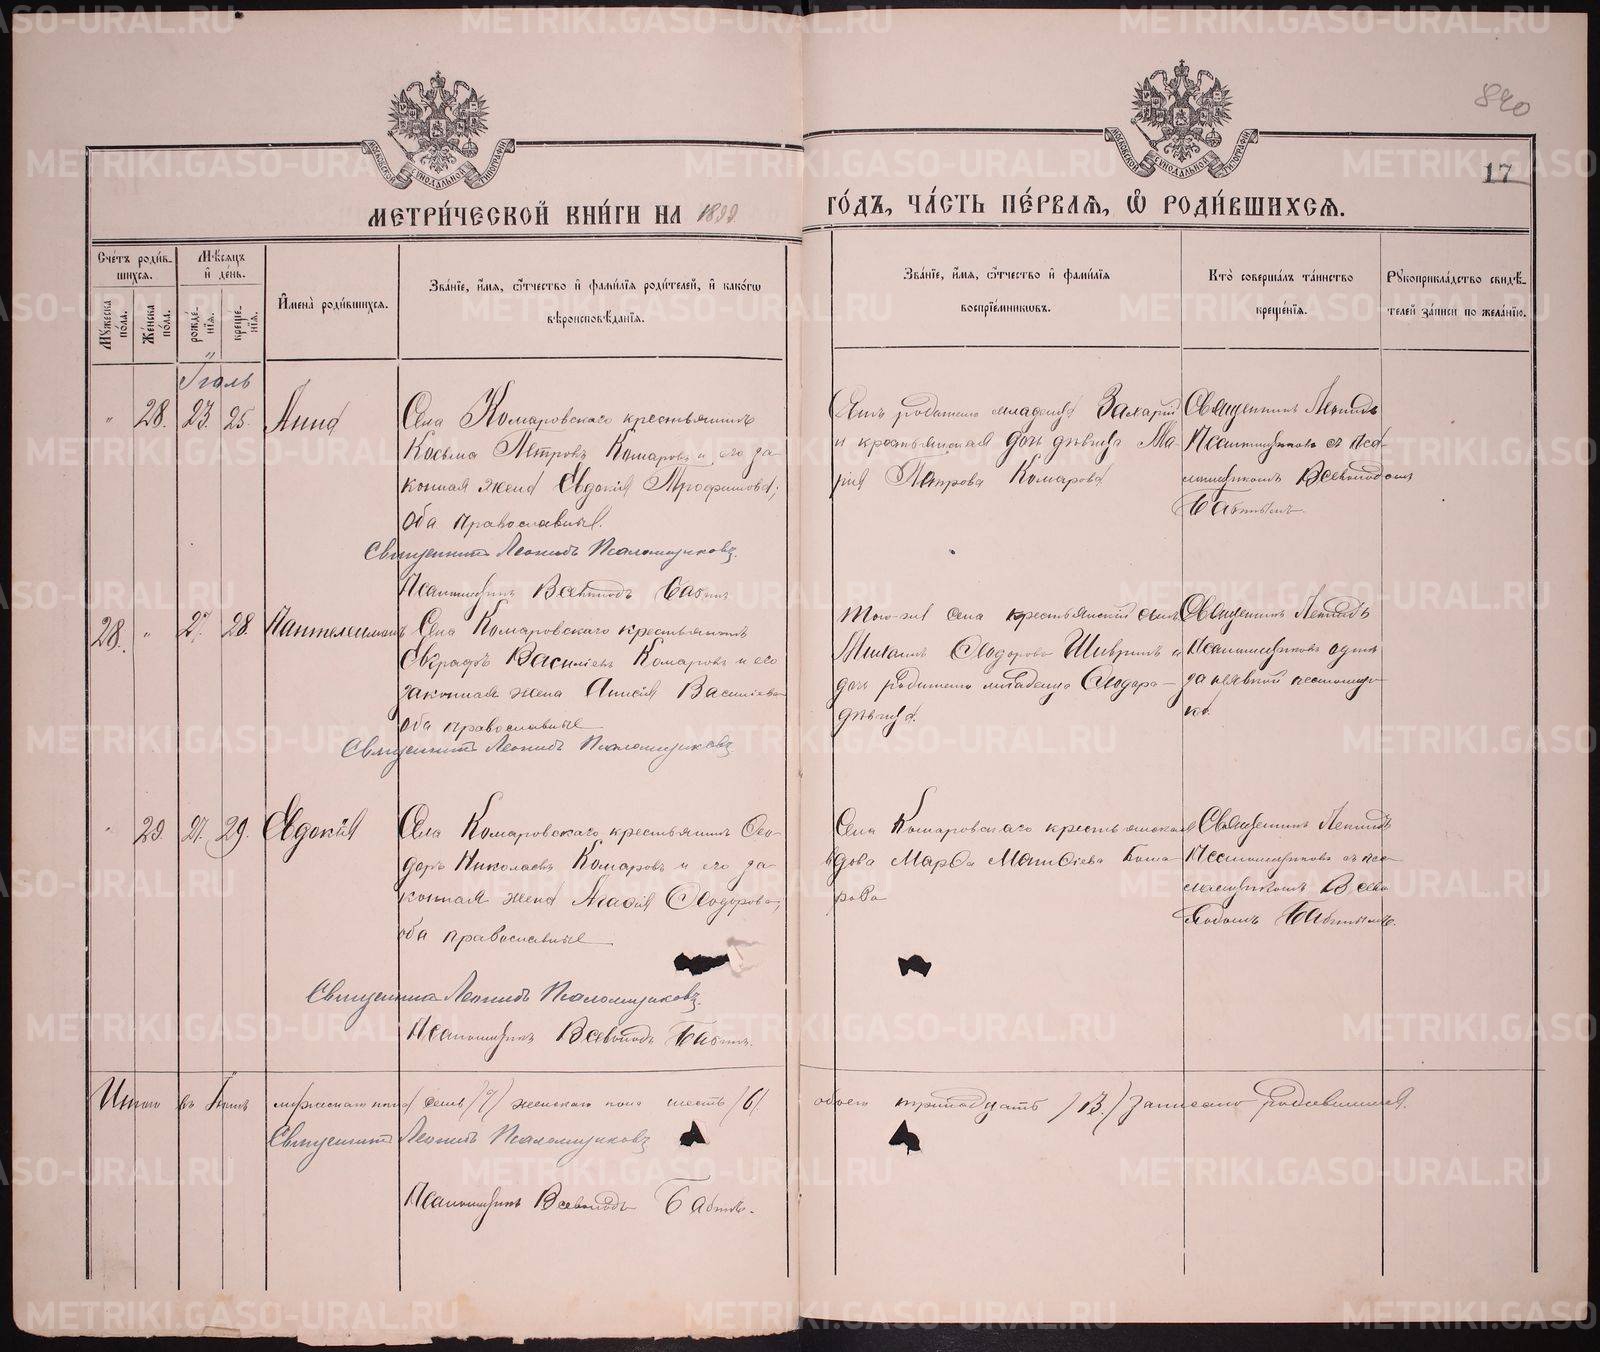 840
17
МОСКОВСКОЙ СУНОДАЛЬНОЙ ТИПОГРАФІИ
МОСКОВСКОЙ СУНОДАЛЬНОЙ ТИПОГРАФІИ
МЕТРИ́ЧЕСКОЙ КНИ́ГИ НА 1899
ГО́ДЪ, ЧА́СТЬ ПЕ́РВАЯ, Ѡ҆ РОДИ́ВШИХСЯ.
Сче́тъ роди́в-
шихся.
Мѣ́сяцъ
и҆ де́нь.
Мꙋ́жеска
пола.
Же́нска
пола.
рожде́-
нїя.
креще́-
нїя.
И҆мена̀ роди́вшихся.
Зва́нїе, и҆́мя, ѻ҆́тчество и҆ фами́лїя роди́телей, и҆ како́гѡ
вѣроисповѣ́данїя.
Зва́нїе, и҆́мя, ѻ҆́тчество и҆ фами́лїя
воспрїе́мникѡвъ.
Кто̀ соверша́лъ та́инство
креще́нїя.
Рꙋкоприкла́дство свидѣ́-
телей за́писи по жела́нїю.
Іюль
" 28. 23. 25. Анна
Села Комаровскаго крестьянинъ
Косьма Петровъ Комаровъ и его за-
конная жена Евдокія Трофимова;
оба православные.
Священникъ Леонидъ Псаломщиковъ.
Псаломщикъ Всеволодъ Бабинъ
Сынъ родителя младенца Захарій
и крестьянская дочь дѣвица Ма-
рія Петрова Комарова
Священникъ Леонидъ
Псаломщиковъ съ пса-
ломщикомъ Всеволодомъ
Бабинымъ.
28. " 27. 28. Пантелеимонъ
Села Комаровскаго крестьянинъ
Евграфъ Васильевъ Комаровъ и его
законная жена Анисія Васильева
оба православные
Священникъ Леонидъ Псаломщиковъ
того-же села крестьянскій сынъ
Михаилъ Ѳеодоровъ Шивринъ и
дочь родителя младенца Ѳеодора-
дѣвица.
Священникъ Леонидъ
Псаломщиковъ одинъ
за неявкой псаломщи-
ка.
" 29. 27. 29. Евдокія
Села Комаровскаго крестьянинъ Ѳео-
доръ Николаевъ Комаровъ и его за-
конная жена Агафія Ѳеодорова;
оба православные
Священникъ Леонидъ Псаломщиковъ.
Псаломщикъ Всеволодъ Бабинъ.
Села Комаровскаго крестьянская
вдова Марѳа Матѳіева Кома-
рова
Священникъ Леонидъ
Псаломщиковъ съ пса-
ломщикомъ Всево-
лодомъ Бабинымъ.
Итого въ Іюлѣ мужескаго пола семь /7/ женскаго пола шесть /6/ обоего тринадцать /13./ записано родившихся.
Священникъ Леонидъ Псаломщиковъ
Псаломщикъ Всеволодъ Бабинъ.
METRIKI.GASO-URAL.RU